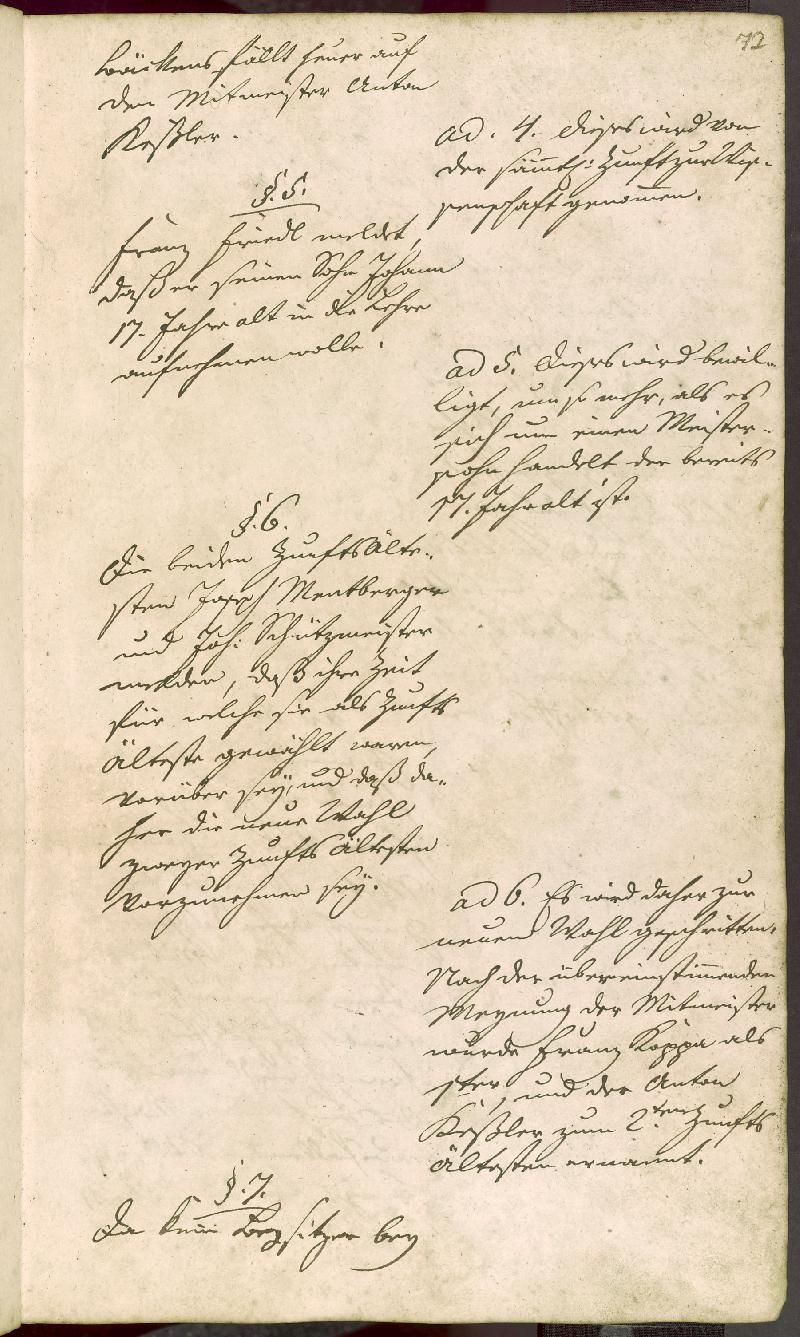 72
backens fällt heuer auf
den Mitmeister Anton
Keßler.
ad. 4. Dieses wird von
der sämtl: Zunft zur Wis-
senschaft genommen.
§. 5.
Franz Friedl meldet,
daß er seinen Sohn Johann
17. Jahre alt in die Lehre
aufnehmen wolle.
ad 5. Dieses wird bewil-
ligt, um so mehr, als es
sich um einen Meister-
sohn handelt der bereits
17. Jahr alt ist.
§. 6.
Die beiden Zunfts Älte-
sten Joseph Mentberger
und Joh: Schützmeister
melden, daß ihre Zeit
für welche sie als Zunfts
Älteste gewählt waren,
vorüber sey, und daß da-
her die neue Wahl
zweyer Zunfts Ältesten
vorzunehmen sey.
ad 6. Es wird daher zur
neuen Wahl geschritten.
Nach der übereinstimmenden
Meynung der Mitmeister
wurde Franz Koppa als
1ster, und der Anton
Keßler zum 2ten Zunfts
Ältesten ernannt.
§. 7.
Da kein Beysitzer bey